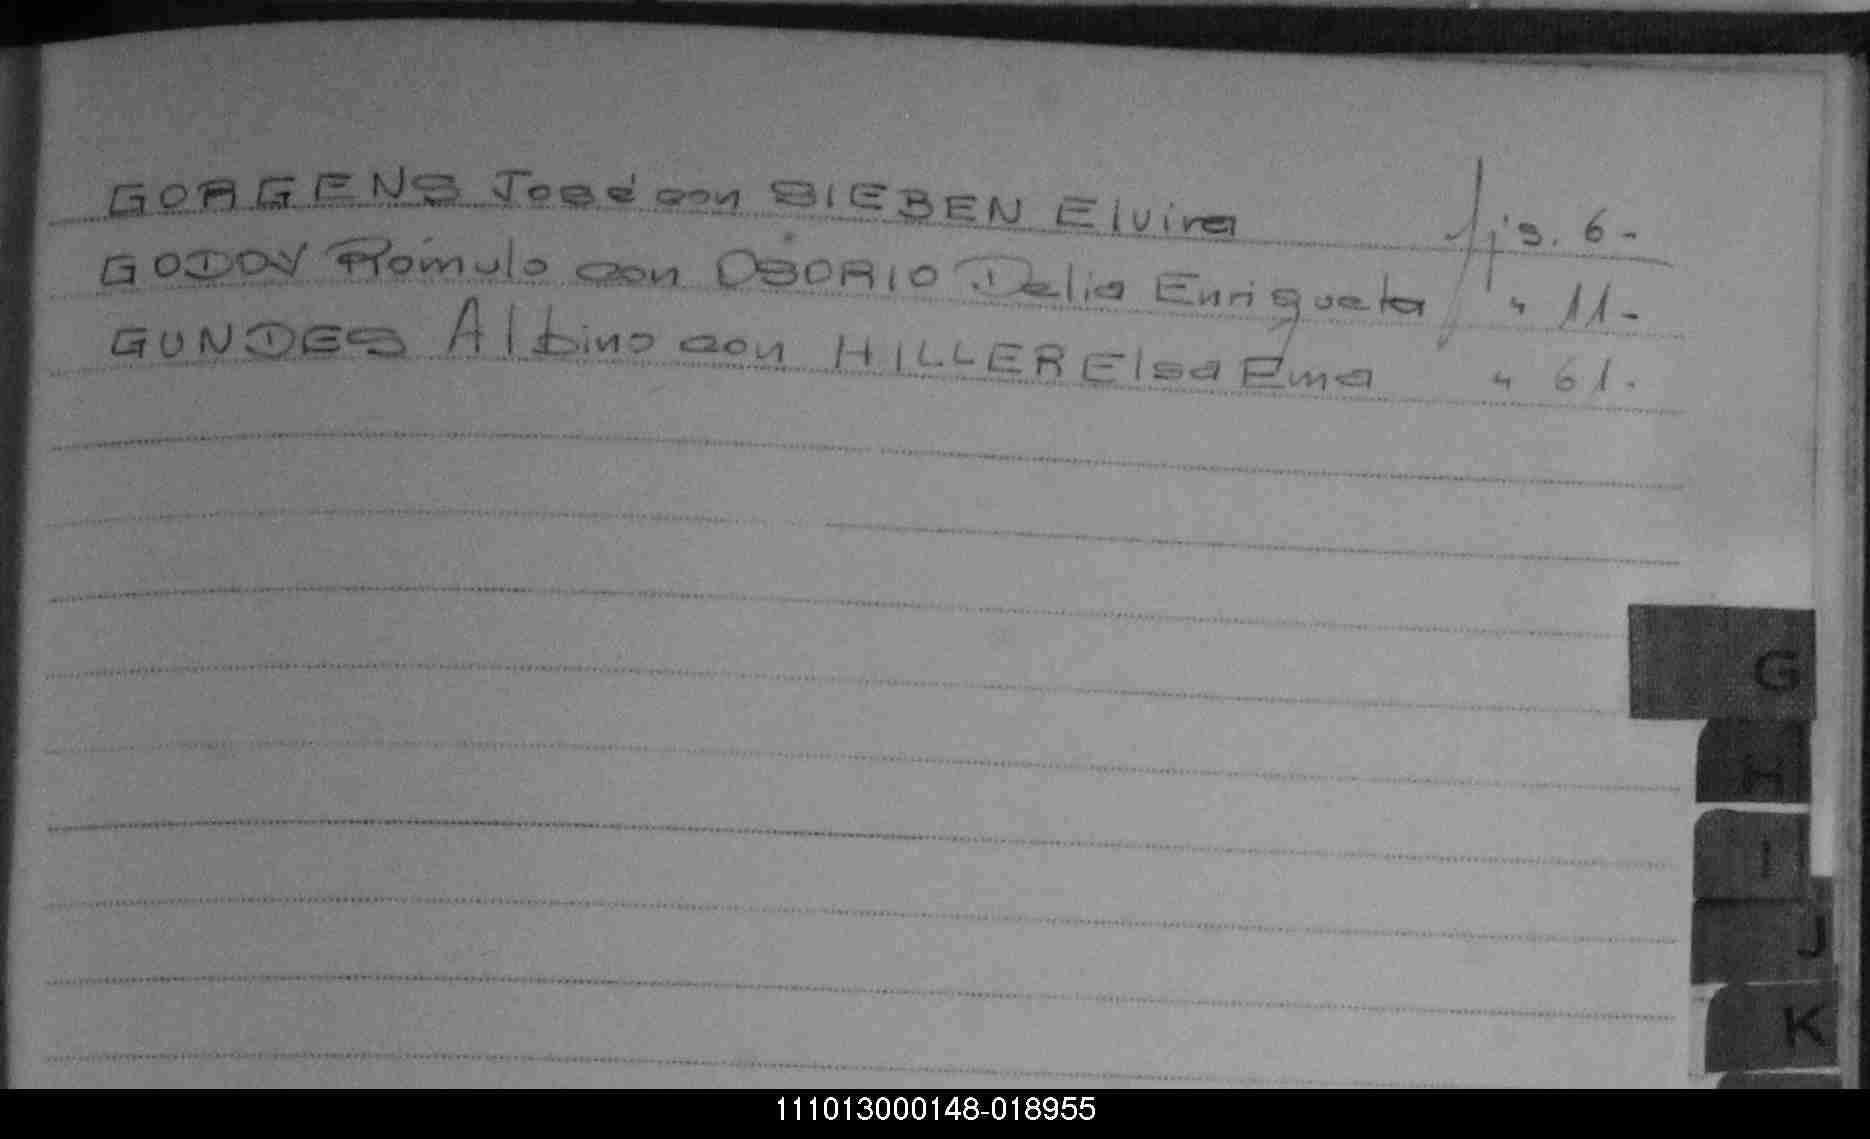 GORGENS José con SIEBEN Elvira fjs. 6-
GODOY Rómulo con OSORIO Delia Enriqueta " 11-
GUNDES Albino con HILLER Elsa Ema " 61.
G
H
I
J
K
111013000148-018955